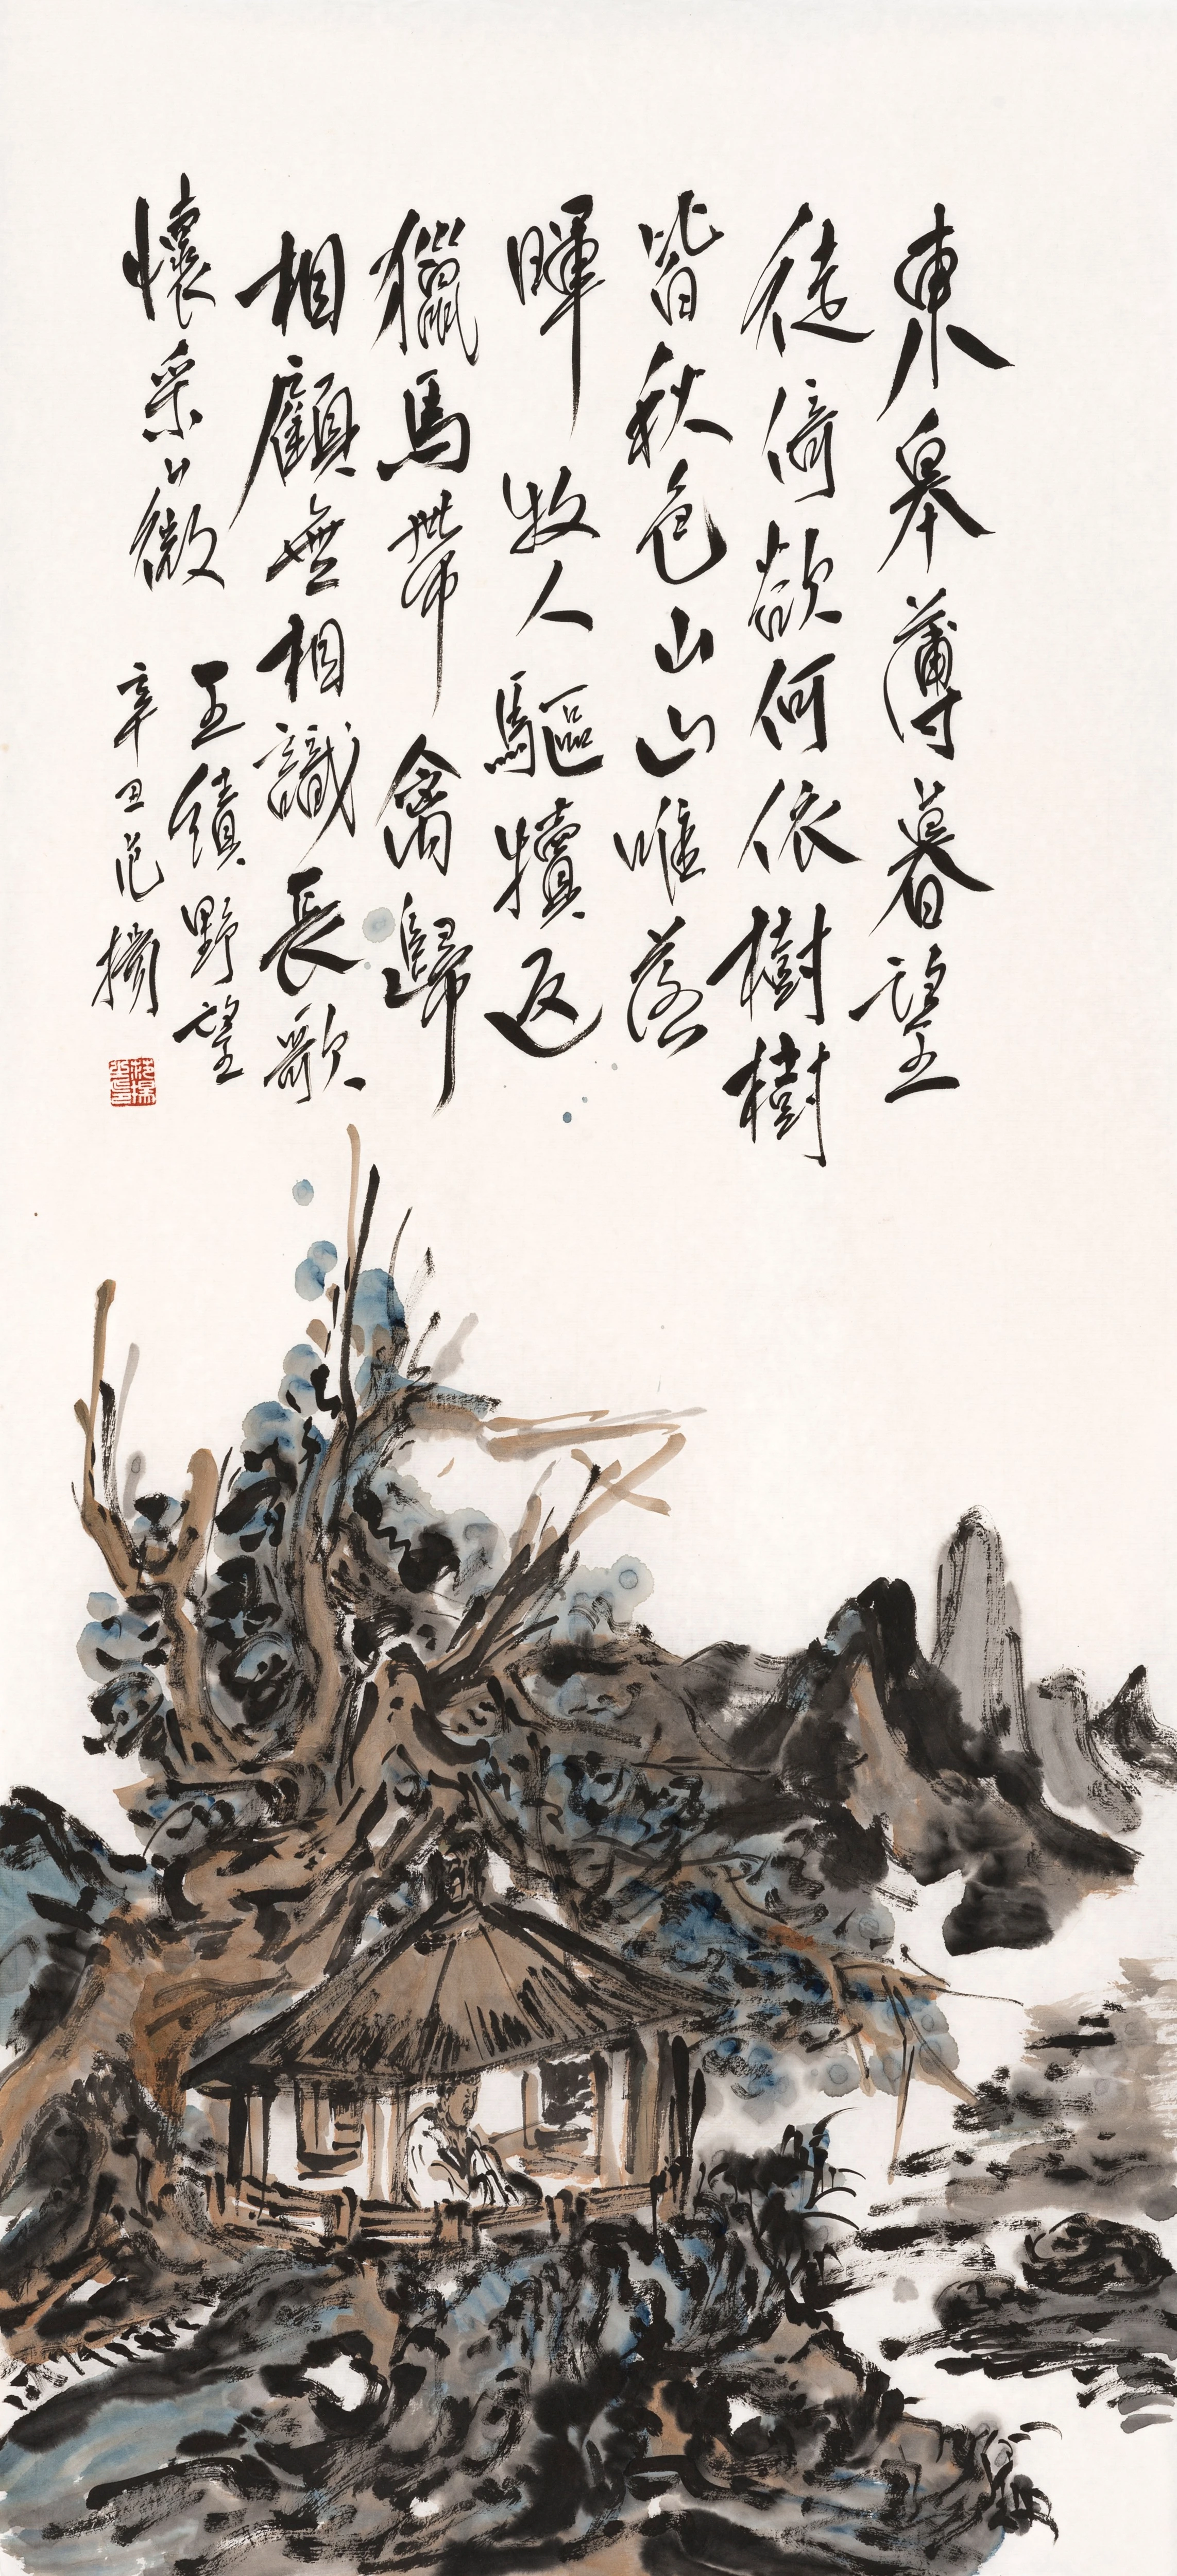 東皋薄暮望
徒倚欲何依樹樹
皆秋色山山唯落
暉牧人驅犢返
獵馬帶禽歸
相顧無相識長歌
懷采薇
王績野望
辛丑范揚